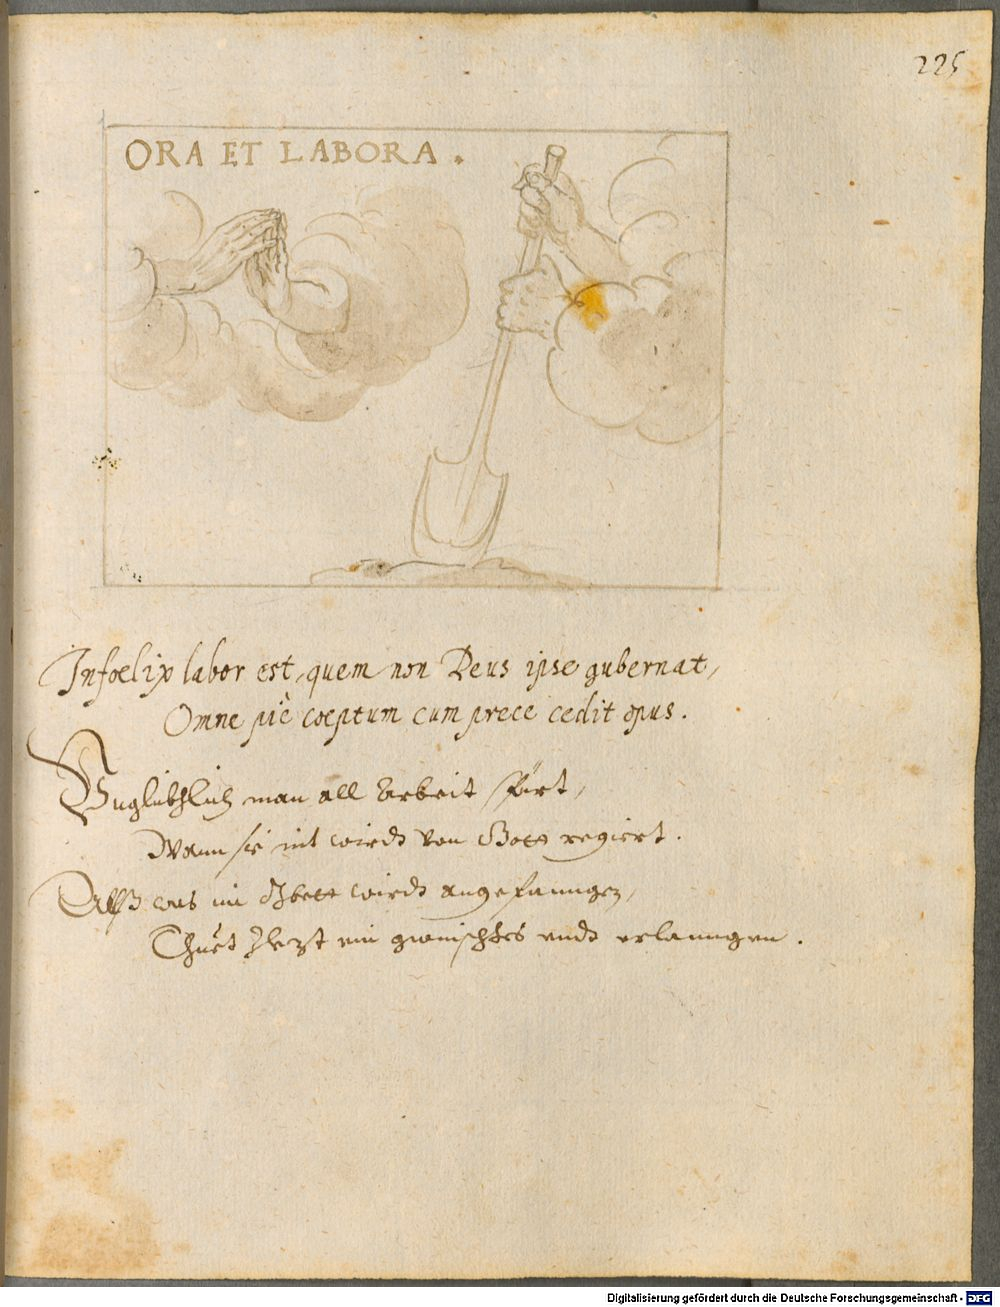 225
ORA ET LABORA .
Infoelix labor est, quem non Deus ipse gubernat,
Omne piè coeptum cum prece cedit opus.
Unglükhlich man all Arbeit spürt,
Wann sie nit wirdt von Gott regiert.
Alß was im Gbett wirdt angefanngen,
Thuet Zlezt ein gwinschtes endt erlanngen.
Digitalisierung gefördert durch die Deutsche Forschungsgemeinschaft - DFG